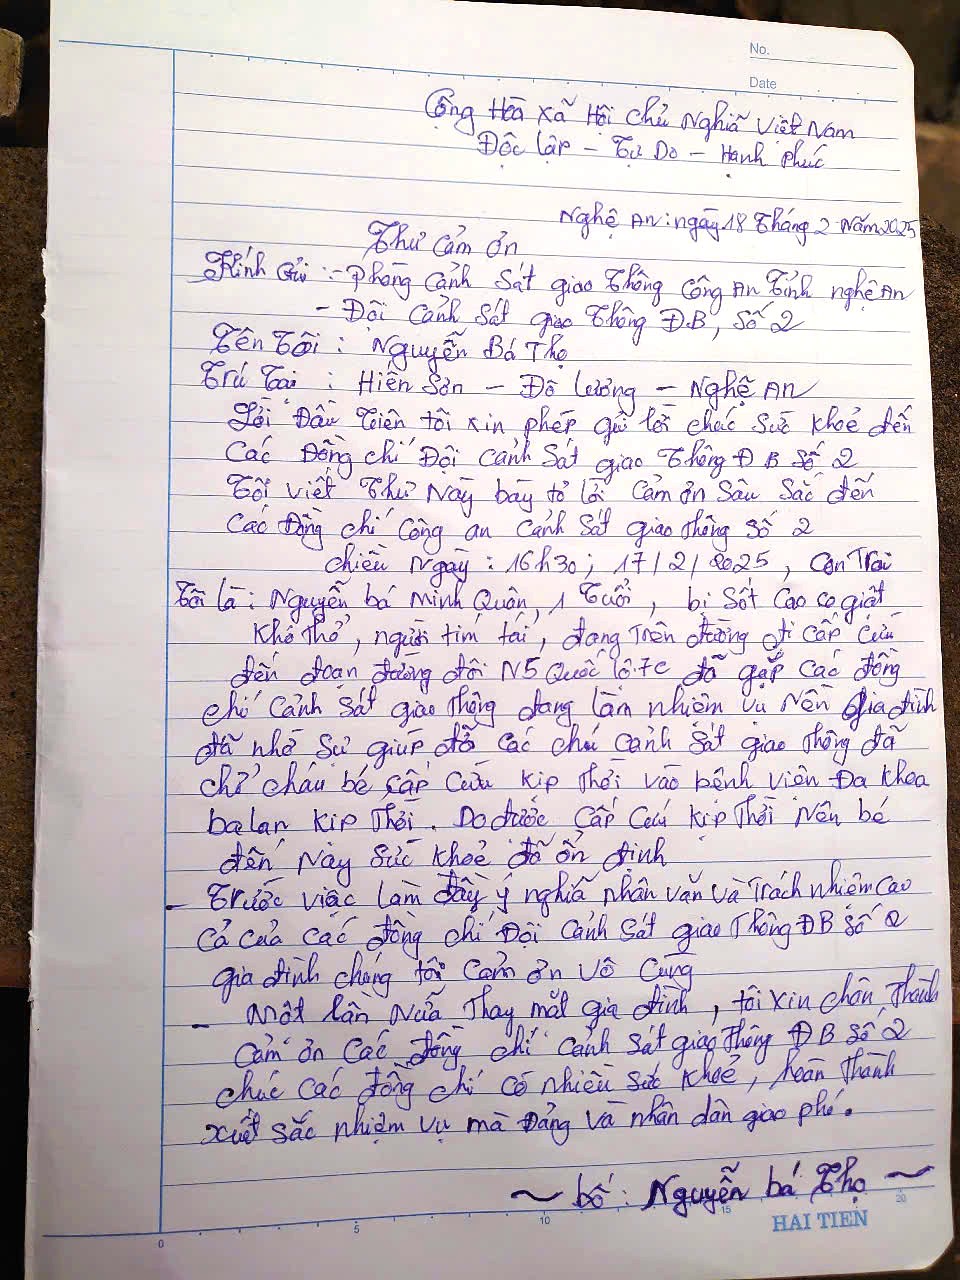 No.
Date
Cộng Hoà xã Hội chủ Nghĩa Việt Nam
Độc lập - Tự Do - Hạnh phúc
Nghệ An: ngày 18 Tháng 2 Năm 2025
Thư cảm ơn
Kính Gửi :- phòng cảnh sát giao Thông Công An Tỉnh nghệ An
- Đội cảnh sát giao Thông ĐB, số 2
Tên Tôi : Nguyễn Bá Thọ
Trú Tại : Hiến Sơn - Đô lương - Nghệ An
Lời Đầu Tiên tôi xin phép gửi lời chúc sức khoẻ đến
Các Đồng chí Đội cảnh sát giao Thông ĐB số 2
Tôi viết Thư Này bày tỏ lời cảm ơn sâu sắc đến
các đồng chí công an cảnh sát giao thông số 2
chiều Ngày : 16h30 ; 17/2/2025, Con Trai
Tôi là : Nguyễn bá Minh Quân, 1 Tuổi, bị sốt cao co giật
khó thở, người tím tái, đang trên đường đi cấp cứu
đến đoạn đường đôi N5 Quốc lộ 7c đã gặp các đồng
chí cảnh sát giao thông đang làm nhiệm vụ Nên gia đình
đã nhờ sự giúp đỡ các chú cảnh sát giao thông đã
chở cháu bé cấp cứu kịp thời vào bệnh viện Đa khoa
ba lan kịp thời. Do được cấp cứu kịp thời Nên bé
đến Này sức khoẻ đã ổn định
- Trước việc làm đầy ý nghĩa nhân văn và Trách nhiệm cao
cả của các đồng chí Đội cảnh sát giao thông ĐB số 2
gia đình chúng tôi cảm ơn vô cùng
- Một lần Nữa Thay mặt gia đình, tôi xin chân Thành
cảm ơn các đồng chí cảnh sát giao thông ĐB số 2
chúc các đồng chí có nhiều sức khoẻ, hoàn thành
xuất sắc nhiệm vụ mà Đảng và nhân dân giao phó.
~ bố : Nguyễn bá Thọ ~
0 5 10 15 20
HAI TIEN